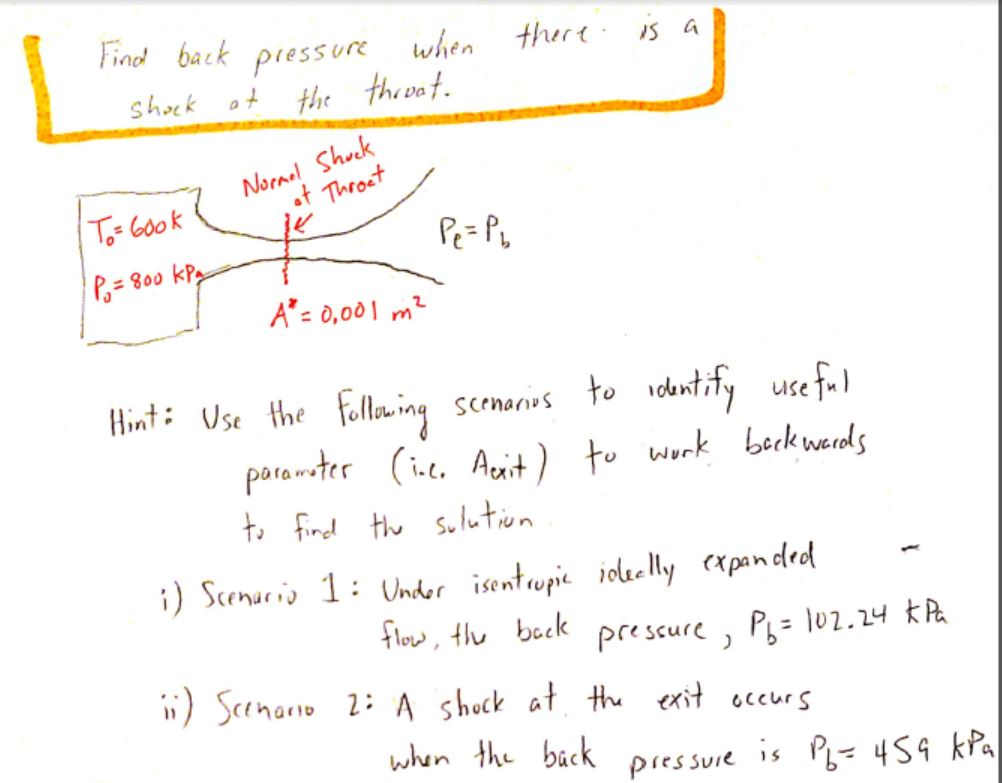 Find back pressure when there is a
shock at the throat.
Normal Shock
at Throat
T₀ = 600 K
P₀ = 800 kPa
Pe = Pb
A* = 0,001 m²
Hint: Use the following scenarios to identify useful
parameter (i.e. Aexit) to work backwards
to find the solution.
i) Scenario 1: Under isentropic ideally expanded
flow, the back pressure, Pb = 102.24 kPa
ii) Scenario 2: A shock at the exit occurs
when the back pressure is Pb = 459 kPa